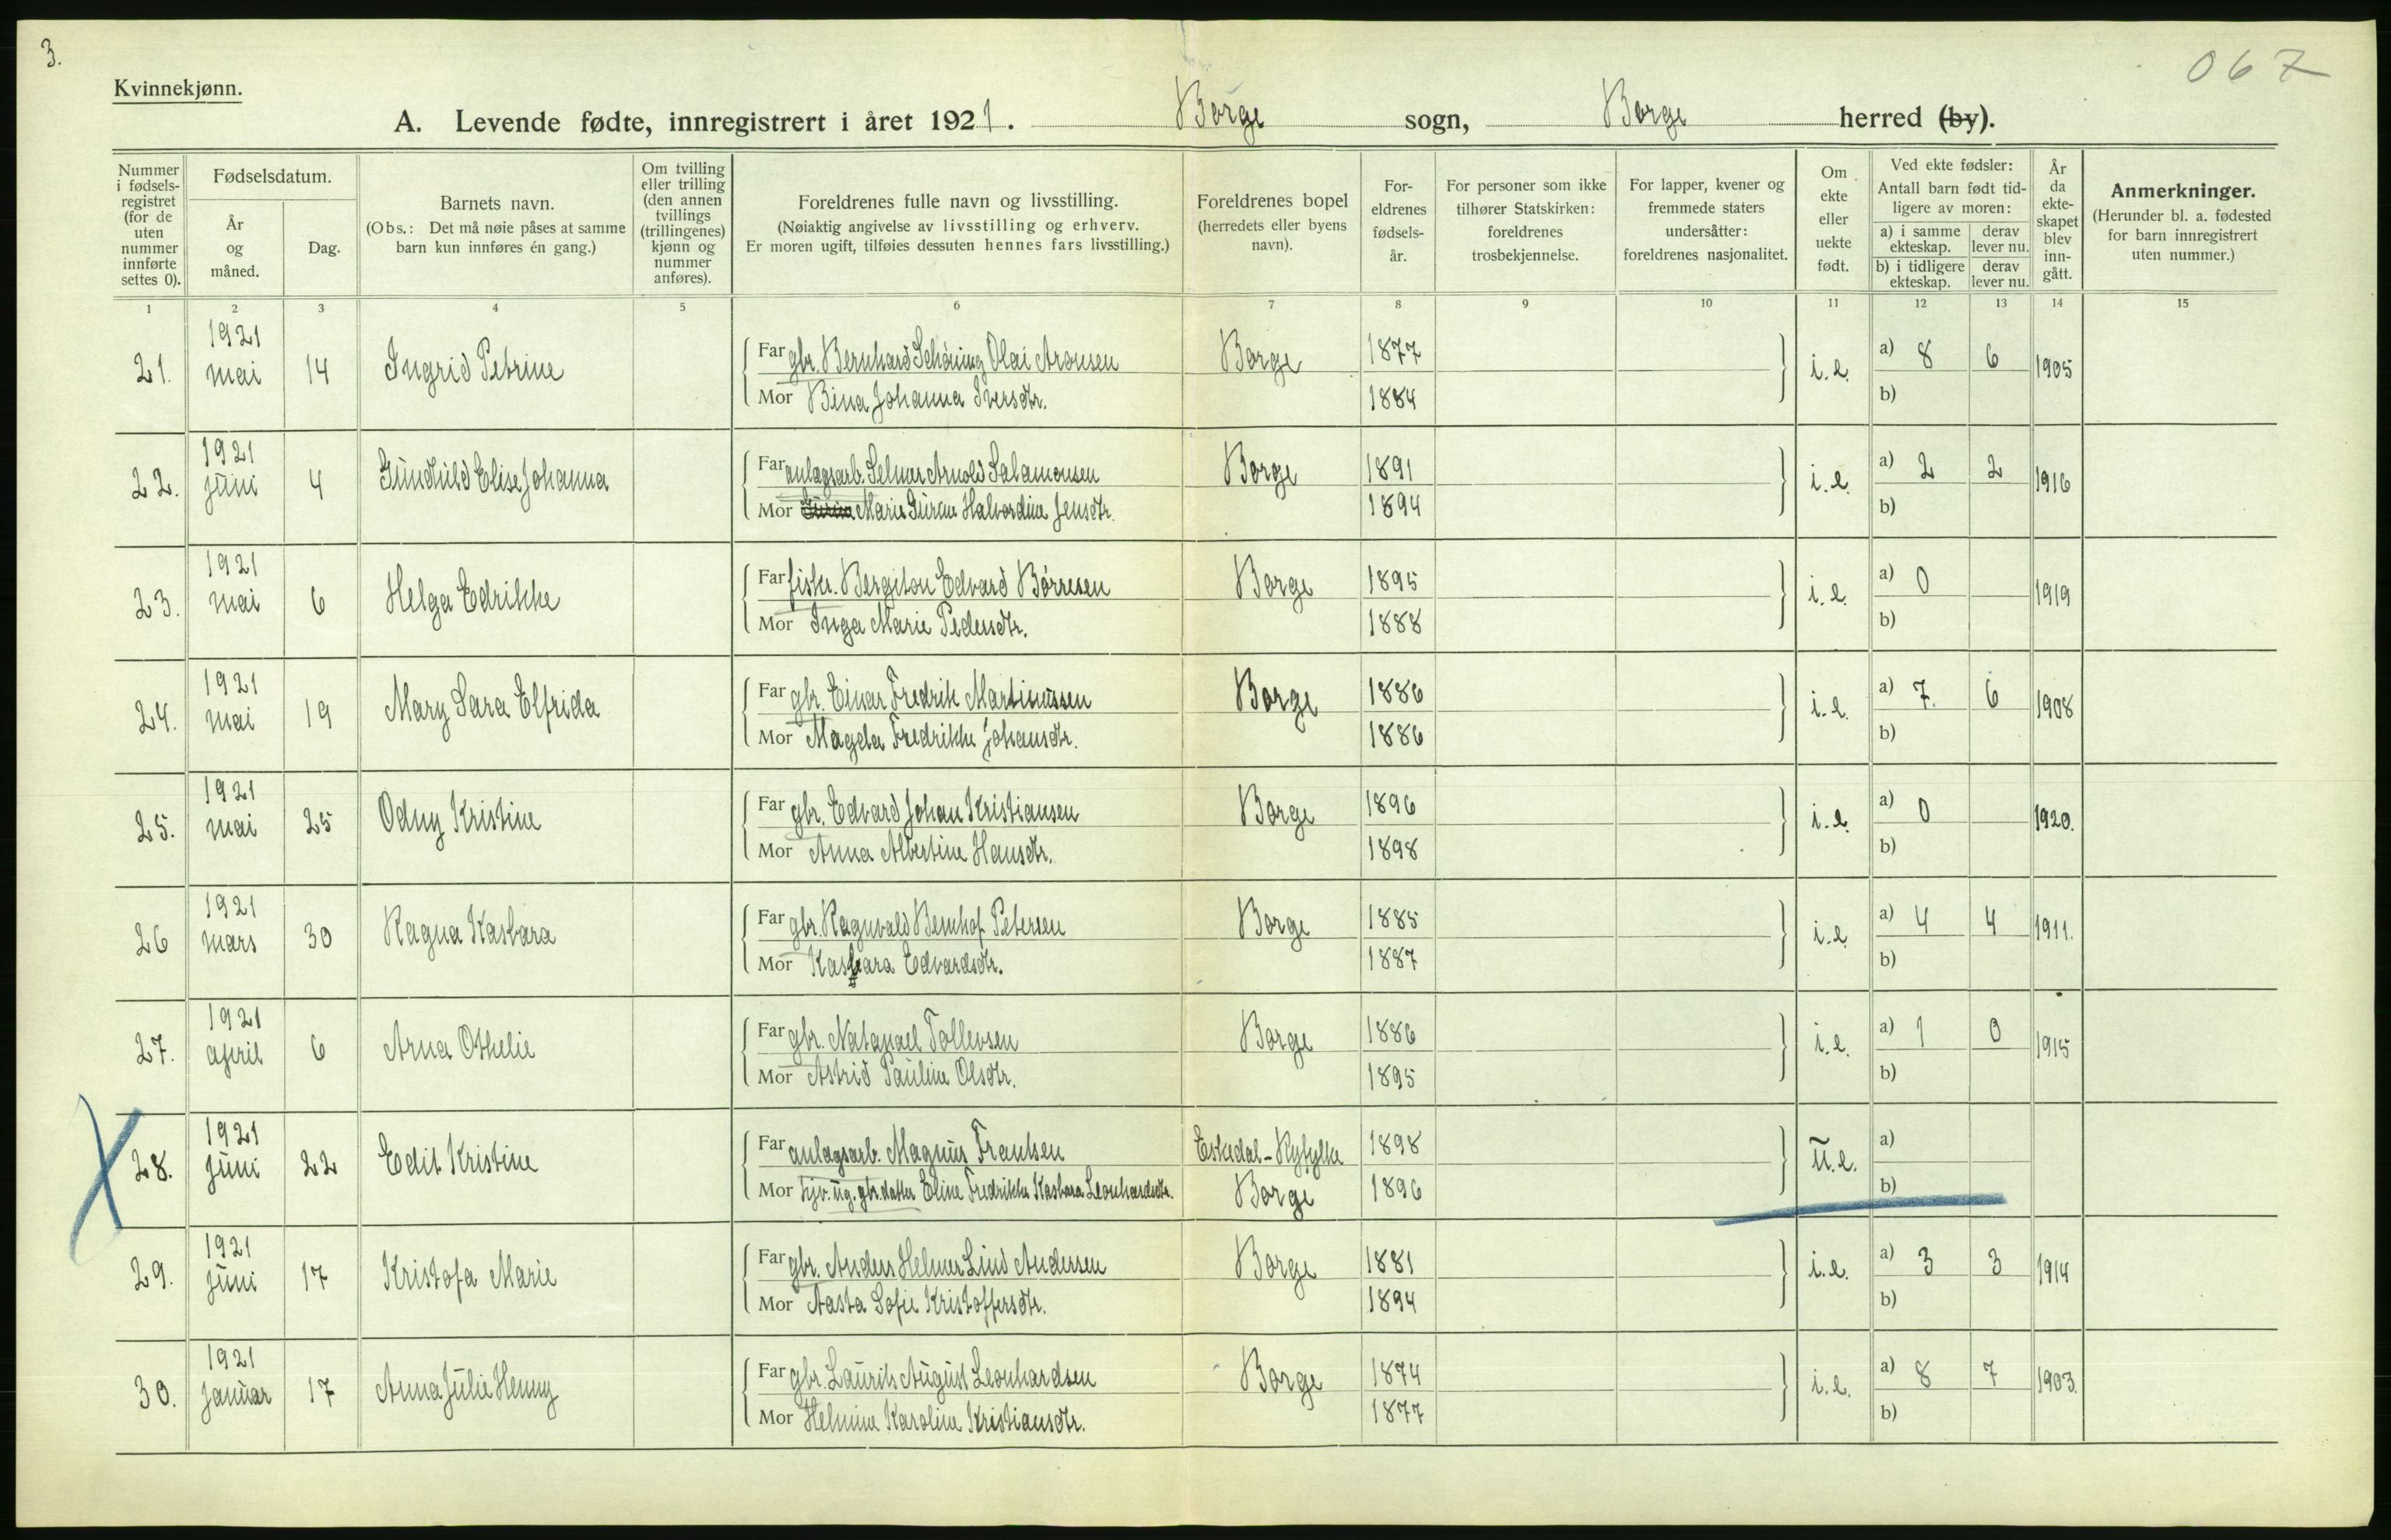 3.
067
Kvinnekjønn.
A. Levende fødte, innregistrert i året 1921. Borge sogn, Borge herred (by).
Nummer i fødsels-registret (for de uten nummer innførte settes 0).
Fødselsdatum.
År og måned.
Dag.
Barnets navn.
(Obs.: Det må nøie påses at samme barn kun innføres én gang.)
Om tvilling eller trilling (den annen tvillings (trillingenes) kjønn og nummer anføres).
Foreldrenes fulle navn og livsstilling.
(Nøiaktig angivelse av livsstilling og erhverv.
Er moren ugift, tilføies dessuten hennes fars livsstilling.)
Foreldrenes bopel
(herredets eller byens navn).
For-eldrenes fødsels-år.
For personer som ikke tilhører Statskirken: foreldrenes trosbekjennelse.
For lapper, kvener og fremmede staters undersåtter: foreldrenes nasjonalitet.
Om ekte eller uekte født.
Ved ekte fødsler:
Antall barn født tid-ligere av moren:
a) i samme ekteskap. derav lever nu.
b) i tidligere ekteskap. derav lever nu.
År da ekte-skapet blev inn-gått.
Anmerkninger.
(Herunder bl. a. fødested for barn innregistrert uten nummer.)
1 2 3 4 5 6 7 8 9 10 11 12 13 14 15
21. 1921 mai 14 Ingrid Petrine Far gbr. Bernhard Schøning Olai Aronsen Borge 1877 i.e. a) 8 6 1905
Mor Bina Johanna Iversdtr. 1884 b)
22. 1921 juni 4 Gundhild Elise Johanna Far anlagsarb. Selmar Arnold Salamonsen Borge 1891 i.e. a) 2 2 1916
Mor Marie Gurine Halvordine Jensdtr. 1894 b)
23. 1921 mai 6 Helga Edrikke Far fisker. Bergiton Edvard Børresen Borge 1895 i.e. a) 0 1919
Mor Inga Marie Pedersdtr. 1888 b)
24. 1921 mai 19 Mary Sara Elfrida Far gbr. Einar Fredrik Martinussen Borge 1886 i.e. a) 7. 6 1908
Mor Magda Fredrikke Johansdtr. 1886 b)
25. 1921 mai 25 Odny Kristine Far gbr. Edvard Johan Kristiansen Borge 1896 i.e. a) 0 1920.
Mor Anna Albertine Hansdtr. 1898 b)
26 1921 mars 30 Ragna Kasbara Far gbr. Ragnvald Bernhof Petersen Borge 1885 i.e. a) 4 4 1911.
Mor Kasbara Edvardsdtr. 1887 b)
27. 1921 april 6 Arna Othelie Far gbr. Natanael Tollevsen Borge 1886 i.e. a) 1 0 1915
Mor Astrid Pauline Olsdtr. 1895 b)
28. 1921 juni 22 Edit Kristine Far anlagsarb. Magnus Frantsen 1898 u.e. a)
Mor tjv. ug. gbr.datter Eline Fredrikke Kasbara Leonhardsdtr. Borge 1896 b)
29. 1921 juni 17 Kristofa Marie Far gbr. Anders Helmer Lind Andersen Borge 1881 i.e. a) 3 3 1914
Mor Aasta Sofie Kristoffersdtr. 1894 b)
30. 1921 januar 17 Anna Julie Henny Far gbr. Laurits August Leonhardsen Borge 1874 i.e. a) 8 7 1903.
Mor Helmine Karoline Kristiansdtr. 1877 b)